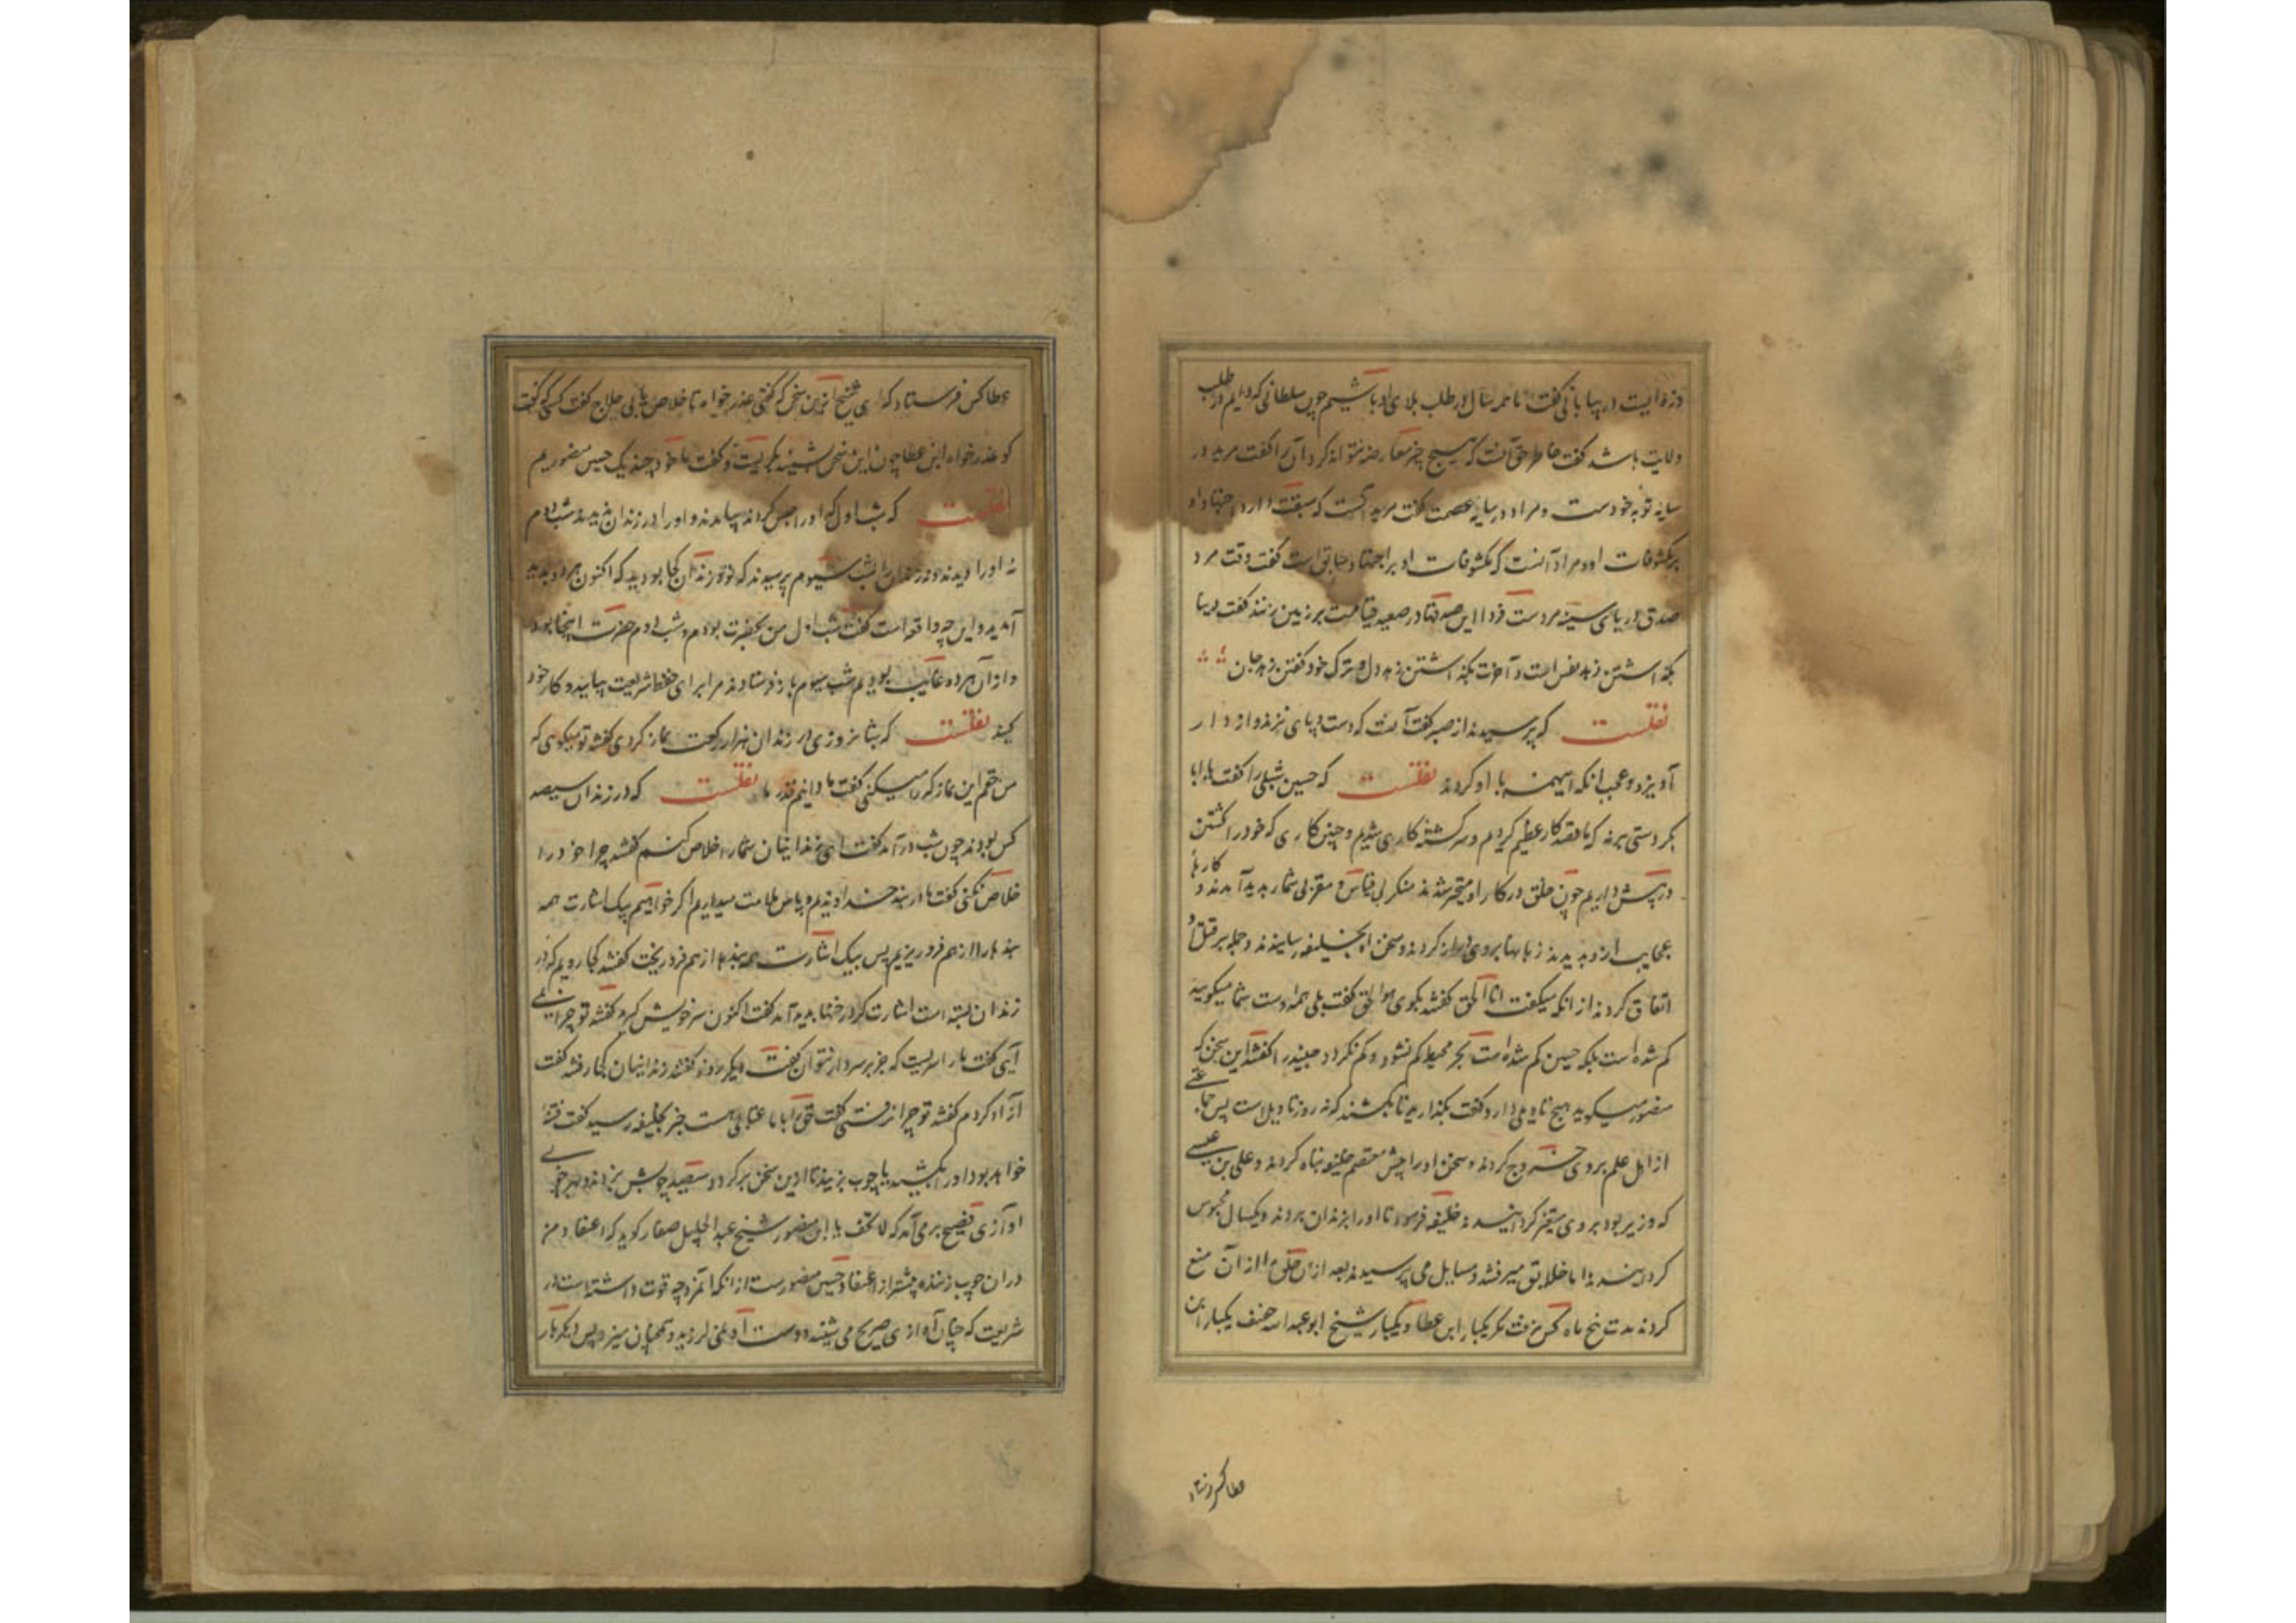 ولایت باشد گفت خاطر حق آنست که هیچ چیز معارضه نتواند کرد آن را گفت مرید در
سایه توبه خودست و مراد در سایه عصمت گفت مرید آنست که سبقت دارد اجتهاد او
بر مکشوفات او و مراد آنست که مکشوفات او بر اجتهاد سابق است گفت وقت مرد
صدف دریای سینه مردست فردا این صدفها در صعید قیامت بر زمین زنند گفت دنیا
بگذاشتن زهد نفس است و آخرت بگذاشتن زهد دل و ترک خود گفتن زهد جان
نقلست که پرسیدند از صبر گفت آنست که دست و پای برند و از دار
آویزند و عجب انکه اینهمه با او کردند نقلست که حسین شبلی را گفت یا بابا
بکر دستی برنه که ما قصد کار عظیم کردیم و سرگشته کاری شدیم و چنین کاری که خود را کشتن
در پیش داریم چون خلق در کار او متحیر شدند منکر بی قیاس و مقر بی شمار پدید آمدند و کارهاء
عجایب ازو بدیدند زبانها بروی دراز کردند و سخن او بخلیفه رسانیدند و جمله بر قتل او
اتفاق کردند از انکه میگفت انا الحق گفتند بگوی هوا لحق گفت بلی همه اوست شما میگویید
گم شده است بلکه حسین گم شده است بحر محیط گم نشود و کم نگردد جنید را گفتند این سخن که
منصور میگوید هیچ تاویلی دارد گفت بگذارید تا بکشند که نه روز تاویل است پس جماعتی
از اهل علم بر وی خروج کردند و سخن او را پیش معتصم خلیفه تباه کردند و علی بن عیسی
که وزیر بود بر وی متغیر گردانیدند خلیفه فرمود تا او را بزندان بردند و یکسال محبوس
کردند اما خلایق میرفتند و مسایل می پرسیدند بعد ازان خلق را از آن منع
کردند مدت پنج ماه کس نرفت مگر یکبار ابن عطا و یکبار شیخ ابو عبدالله خفیف یکبار ابن
عطا کس فرستاد
عطا کس فرستاد که ای شیخ ازین سخن که گفتی عذر خواه تا خلاص یابی حلاج گفت کسی که گفت
گو عذر خواه ابن عطا چون این سخن بشنید بگریست و گفت ما خود چند یک حسین منصوریم
نقلست که شب اول که او را حبس کردند بیامدند و او را در زندان ندیدند شب دوم
نه او را دیدند و نه زندان را شب سیوم پرسیدند که تو و زندان کجا بودید که اکنون هر دو پدید
آمدید و این چه واقعه است گفت شب اول من بحضرت بودم و شب دوم حضرت اینجا بود
و از آن هر دو غایب بودیم شب سیوم باز فرستادند مرا برای حفظ شریعت بیایید و کار خود
کنید نقلست که شبانروزی در زندان هزار رکعت نماز کردی گفتند تو میگوی که
من حقم این نماز کرا میکنی گفت ما دانیم قدر ما نقلست که در زندان سیصد
کس بودند چون شب درآمد گفت ای زندانیان شما را خلاص کنم گفتند چرا خود را
خلاص نکنی گفت ما در بند خداوندیم و پاس سلامت میداریم اگر خواهیم بیک اشارت همه
بندها را از هم فرو ریزیم پس بیک اشارت همه بندها از هم فرو ریخت گفتند کجا رویم که در
زندان بسته است اشارت کرد رخنها پدید آمد گفت اکنون سر خویش گیرید گفتند تو چرا نمی
آیی گفت ما را سریست که جز بر سر دار نتوان گفت دیگر روز گفتند زندانیان کجا رفتند گفت
آزاد کردم گفتند تو چرا نرفتی گفت حق را با ما عتابی هست خبر بخلیفه رسید گفت فتنه
خواهد بود او را بکشید یا چوب بزنید تا ازین سخن برگردد سیصد چوبش بزدند و بهر چوبی
آوازی فصیح برمی آمد که لا تخف یا ابن منصور شیخ عبدالجلیل صفار گوید که اعتقاد من
در ان چوب زننده بیشتر از اعتقاد حسین منصورست از انکه آن مرد چه قوت داشته است در
شریعت که چنان آواز صریح می شنید و دست او نمی لرزید و همچنان میزد پس دیگر بار